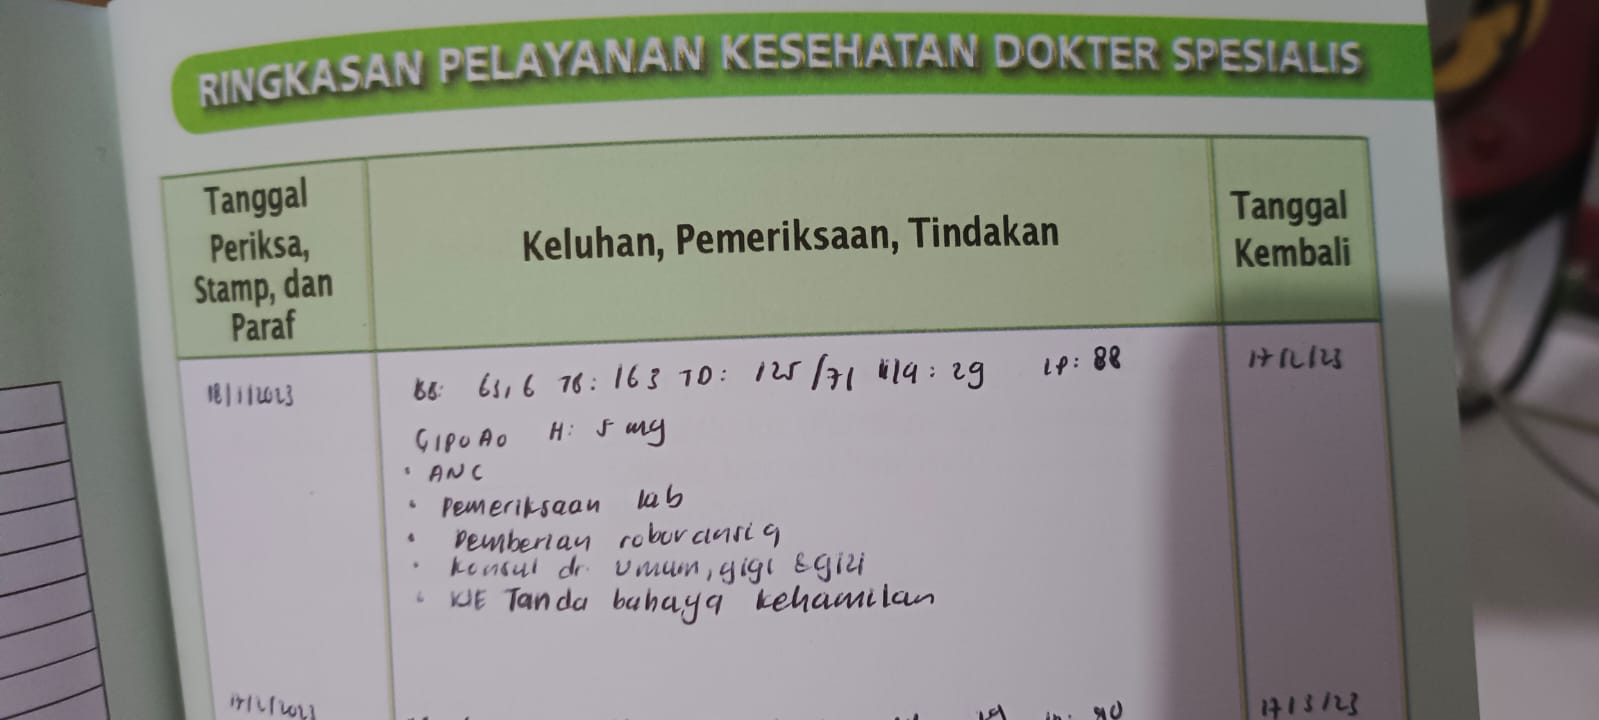 RINGKASAN PELAYANAN KESEHATAN DOKTER SPESIALIS
Tanggal
Periksa,
Stamp, dan
Paraf
Keluhan, Pemeriksaan, Tindakan
Tanggal
Kembali
18/1/2023
BB: 63,6 TB: 163 TD: 125/71 lila: 29 LP: 88
17/2/23
G1P0A0 H: 5 mg
• ANC
• Pemeriksaan lab
• Pemberian roboransia
• Konsul dr. Umum, gigi & gizi
• KIE Tanda bahaya kehamilan
17/2/2023
17/3/23